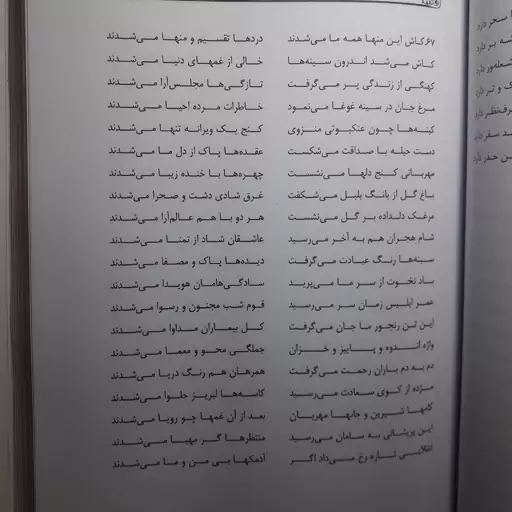 ۶۷.کاش این منها همه ما می‌شدند دردها تقسیم و منها می‌شدند
کاش می‌شد اندرون سینه‌ها خالی از غمهای دنیا می‌شدند
کهنگی از زندگی پر می‌گرفت تازگی‌ها مجلس‌آرا می‌شدند
مرغ جان در سینه غوغا می‌نمود خاطرات مرده احیا می‌شدند
کینه‌ها چون عنکبوتی منزوی کنج یک ویرانه تنها می‌شدند
دست حیله با صداقت می‌شکست عقده‌ها پاک از دل ما می‌شدند
مهربانی کنج دلها می‌نشست چهره‌ها با خنده زیبا می‌شدند
باغ گل از بانگ بلبل می‌شکفت غرق شادی دشت و صحرا می‌شدند
مرغک دلداده بر گل می‌نشست هر دو با هم عالم‌آرا می‌شدند
شام هجران هم به آخر می‌رسید عاشقان شاد از تمنا می‌شدند
سینه‌ها رنگ عبادت می‌گرفت دیده‌ها پاک و مصفا می‌شدند
باد نخوت از سر ما می‌پرید سادگی‌هامان هویدا می‌شدند
عمر ابلیس زمان سر می‌رسید قوم شب مجنون و رسوا می‌شدند
این تن رنجور ما جان می‌گرفت کل بیماران مداوا می‌شدند
واژه اندوه و پاییز و خزان جملگی محو و معما می‌شدند
دم به دم باران رحمت می‌گرفت همرهان هم رنگ دریا می‌شدند
مژده از کوی سعادت می‌رسید کاسه‌ها لبریز حلوا می‌شدند
کامها شیرین و جانها مهربان بعد از آن غمها چو رویا می‌شدند
این پریشانی به سامان می‌رسید منتظرها گر مهیا می‌شدند
انقلابی تازه رخ می‌داد اگر آدمکها بی من و ما می‌شدند